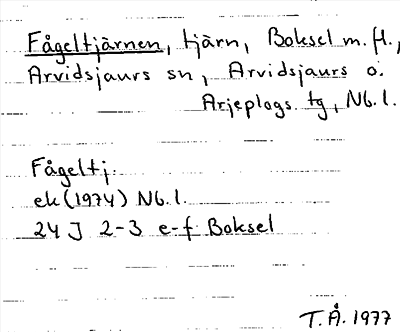 Fågeltjärnen, tjärn, Boksel m.fl.,
Arvidsjaurs sn, Arvidsjaurs o.
Arjeplogs tg, Nb.l.
Fågeltj.
ek (1974) Nb.l.
24 J 2-3 e-f Boksel
T.Å. 1977